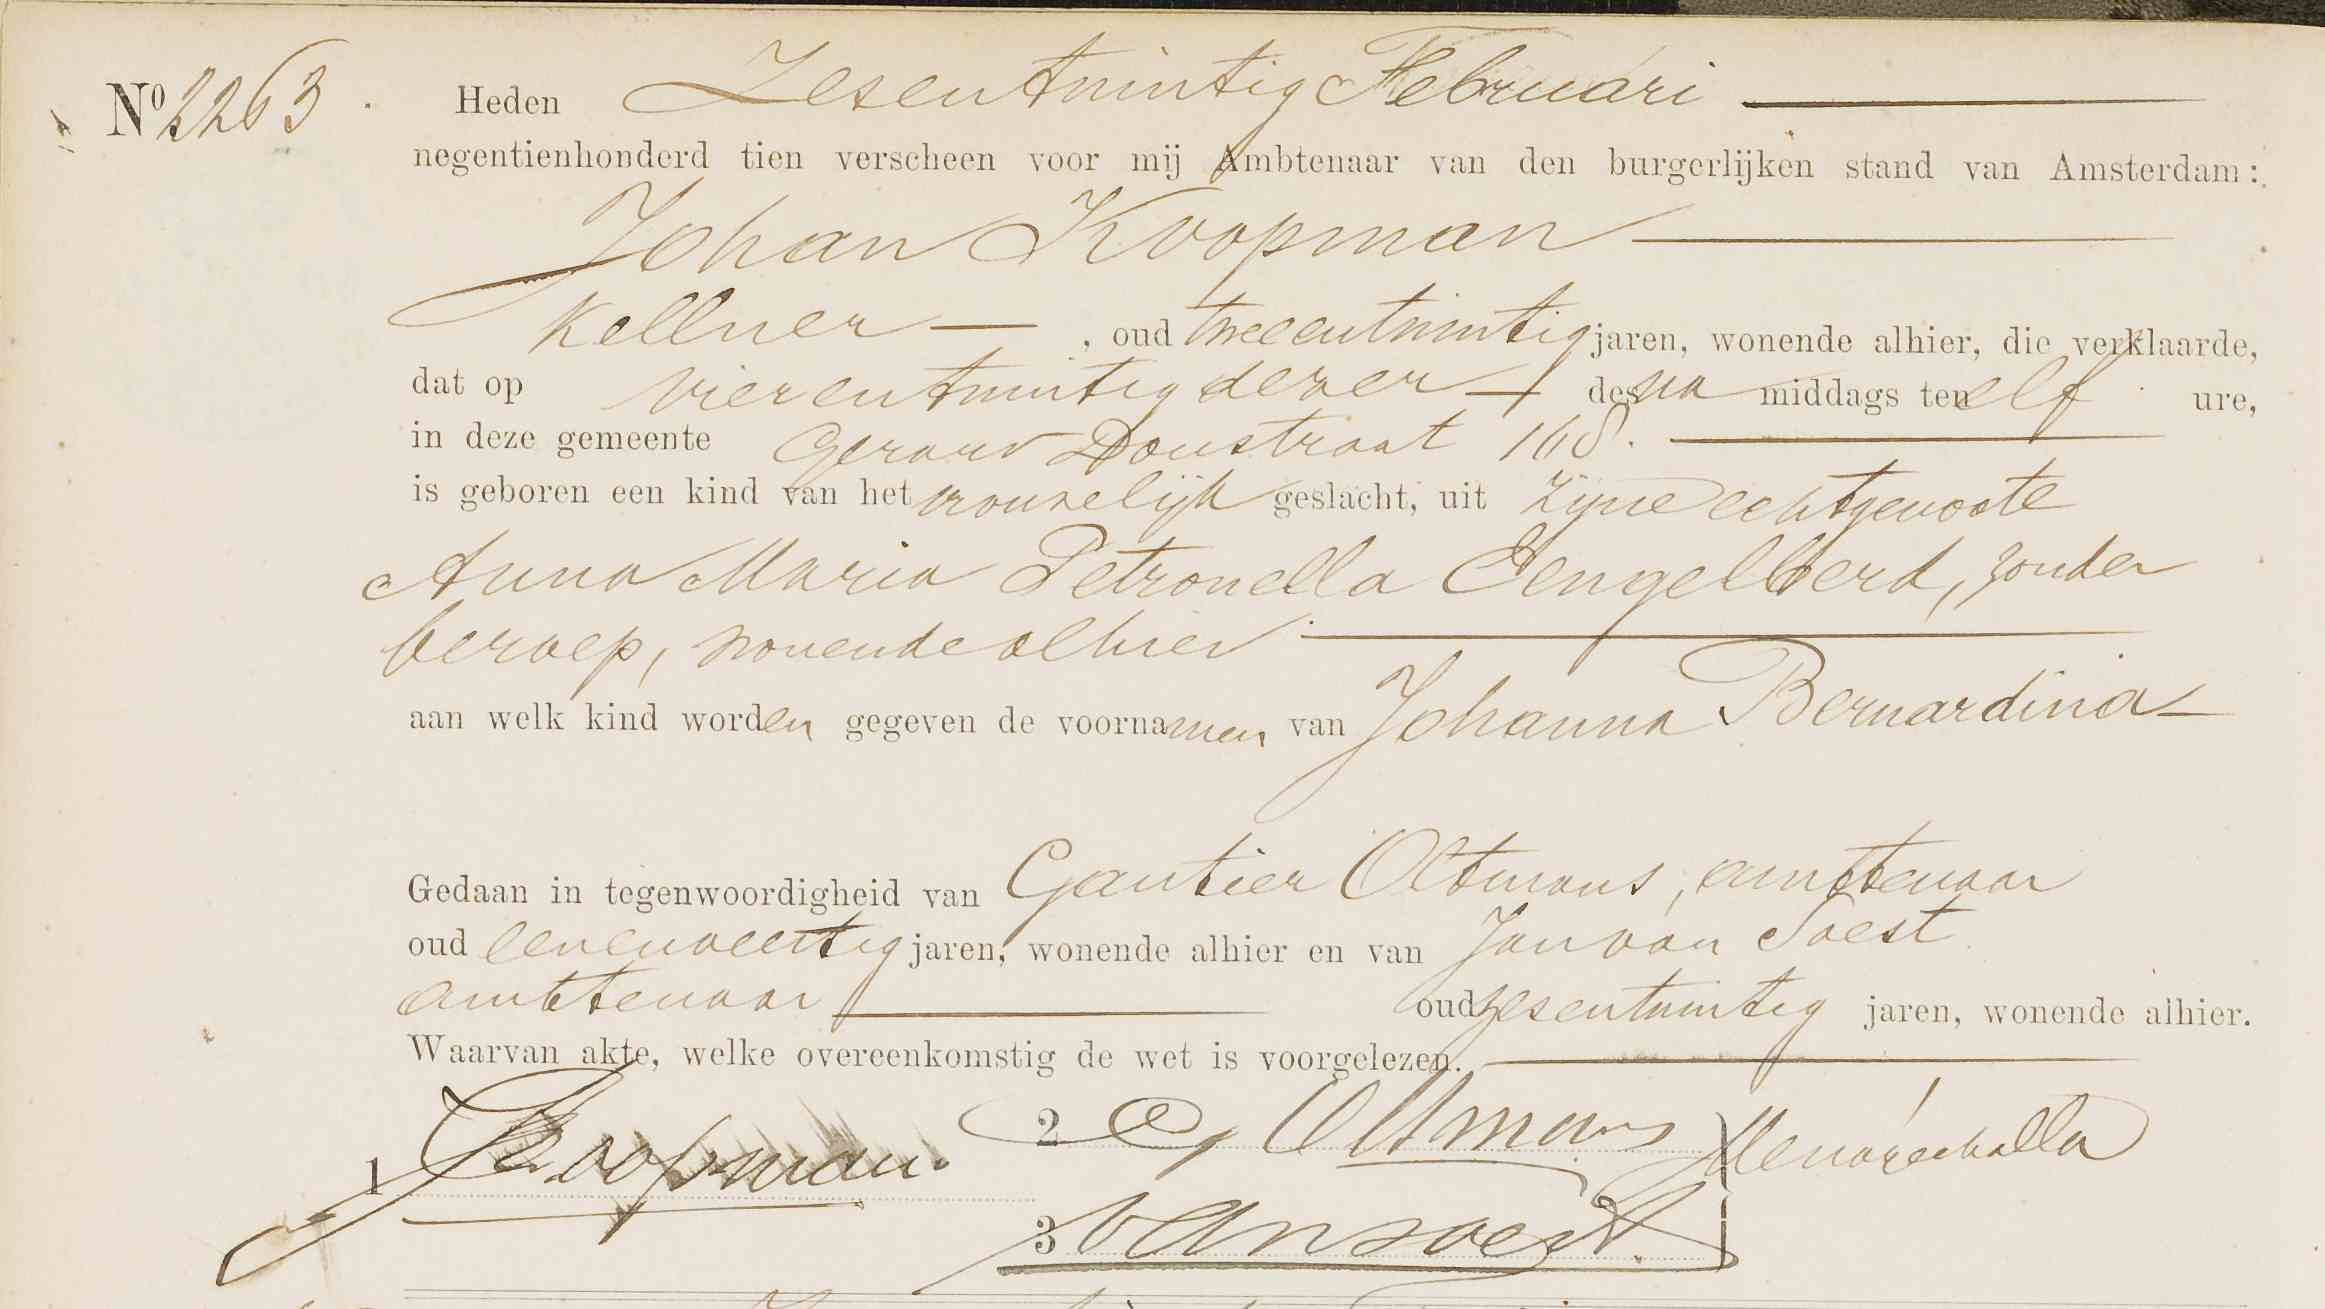 No 2263. Heden Zesentwintig Februari
negentienhonderd tien verscheen voor mij Ambtenaar van den burgerlijken stand van Amsterdam:
Johan Koopman
Kellner, oud tweeentwintig jaren, wonende alhier, die verklaarde,
dat op vierentwintig dezer des na middags ten elf ure,
in deze gemeente Gerard Doustraat 168.
is geboren een kind van het vrouwelijk geslacht, uit zijne echtgenoote
Anna Maria Petronella Engelberd, zonder
beroep, wonende alhier
aan welk kind worden gegeven de voornamen van Johanna Bernardina
Gedaan in tegenwoordigheid van Gautier Oltmans, ambtenaar
oud eenenveertig jaren, wonende alhier en van Jan van Soest
ambtenaar oud zesentwintig jaren, wonende alhier.
Waarvan akte, welke overeenkomstig de wet is voorgelezen.
1 JKoopman.
2 G Oltmans
3 van Soest